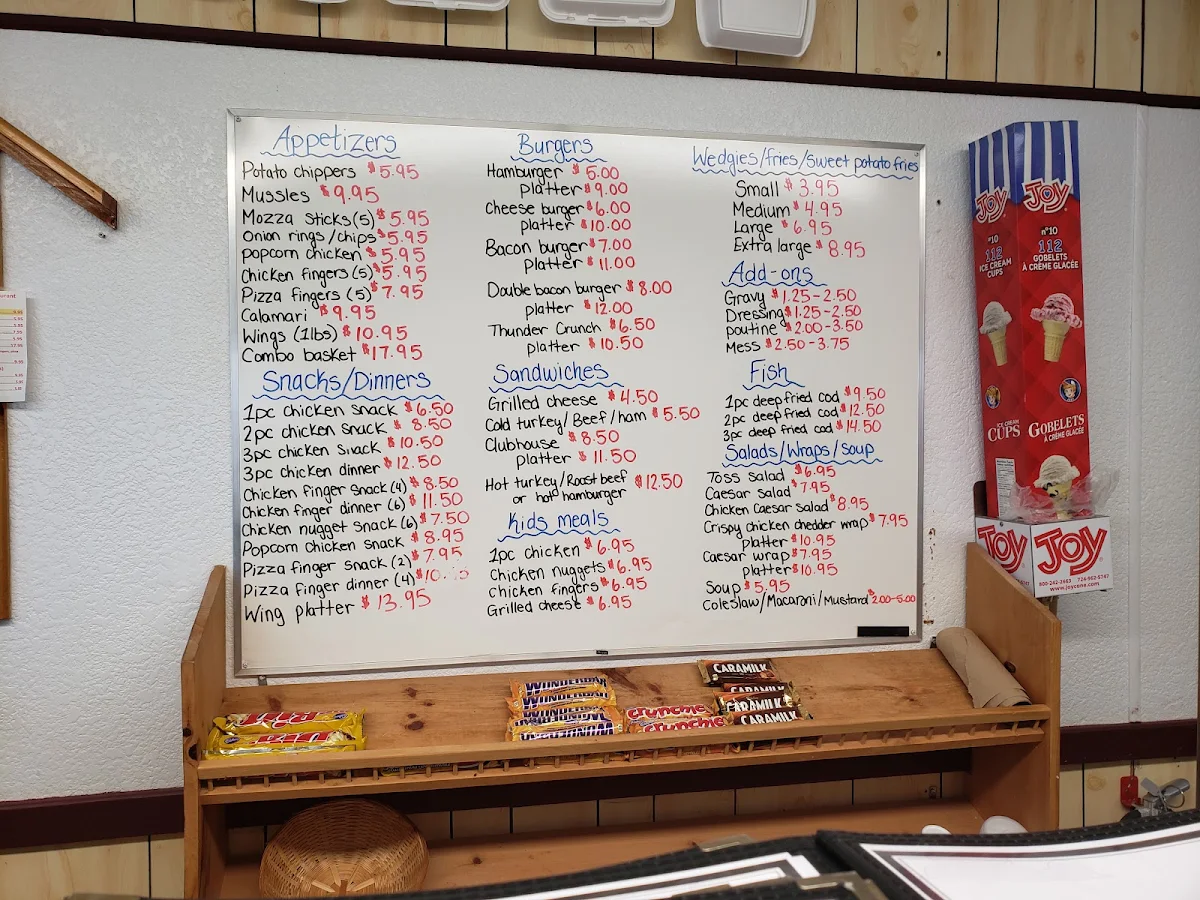 Appetizers
Potato chippers $5.95
Mussles $9.95
Mozza sticks(5) $5.95
Onion rings/chips $5.95
popcorn chicken $5.95
Chicken fingers (5) $5.95
Pizza fingers (5) $7.95
Calamari $9.95
Wings (1lbs) $10.95
Combo basket $17.95
Snacks/Dinners
1pc chicken snack $6.50
2pc chicken snack $8.50
3pc chicken snack $10.50
3pc chicken dinner $12.50
Chicken finger snack (4) $8.50
Chicken finger dinner (6) $11.50
Chicken nugget snack (6) $7.50
Popcorn chicken snack $8.95
Pizza finger snack (2) $7.95
Pizza finger dinner (4)
Wing platter $13.95
Burgers
Hamburger $5.00
platter $9.00
Cheese burger $6.00
platter $10.00
Bacon burger $7.00
platter $11.00
Double bacon burger $8.00
platter $12.00
Thunder Crunch $6.50
platter $10.50
Sandwiches
Grilled cheese $4.50
Cold turkey/Beef/ham $5.50
Clubhouse $8.50
platter $11.50
Hot turkey/Roast beef $12.50
or hot hamburger
Kids meals
1pc chicken $6.95
Chicken nuggets $6.95
Chicken fingers $6.95
Grilled cheese $6.95
Wedgies/fries/sweet potato fries
Small $3.95
Medium $4.95
Large $6.95
Extra large $8.95
Add-ons
Gravy $1.25-2.50
Dressing $1.25-2.50
poutine $2.00-3.50
Mess $2.50-3.75
Fish
1pc deep fried cod $9.50
2pc deep fried cod $12.50
3pc deep fried cod $14.50
Salads/Wraps/Soup
Toss salad $6.95
Caesar salad $7.95
Chicken Caesar salad $8.95
Crispy chicken chedder wrap $7.95
platter $10.95
Caesar wrap $7.95
platter $10.95
Soup $5.95
Coleslaw/Macaroni/Mustard $2.00-5.00
JOY
#10
112
ICE CREAM
CUPS
ICE CREAM
CUPS
JOY
n°10
112
GOBELETS
À CRÈME GLACÉE
GOBELETS
À CRÈME GLACÉE
JOY
JOY
800-242-2663
www.joycone.com
WUNDERBAR
WUNDERBAR
crunchie
crunchie
CARAMILK
CARAMILK
CARAMILK
CARAMILK